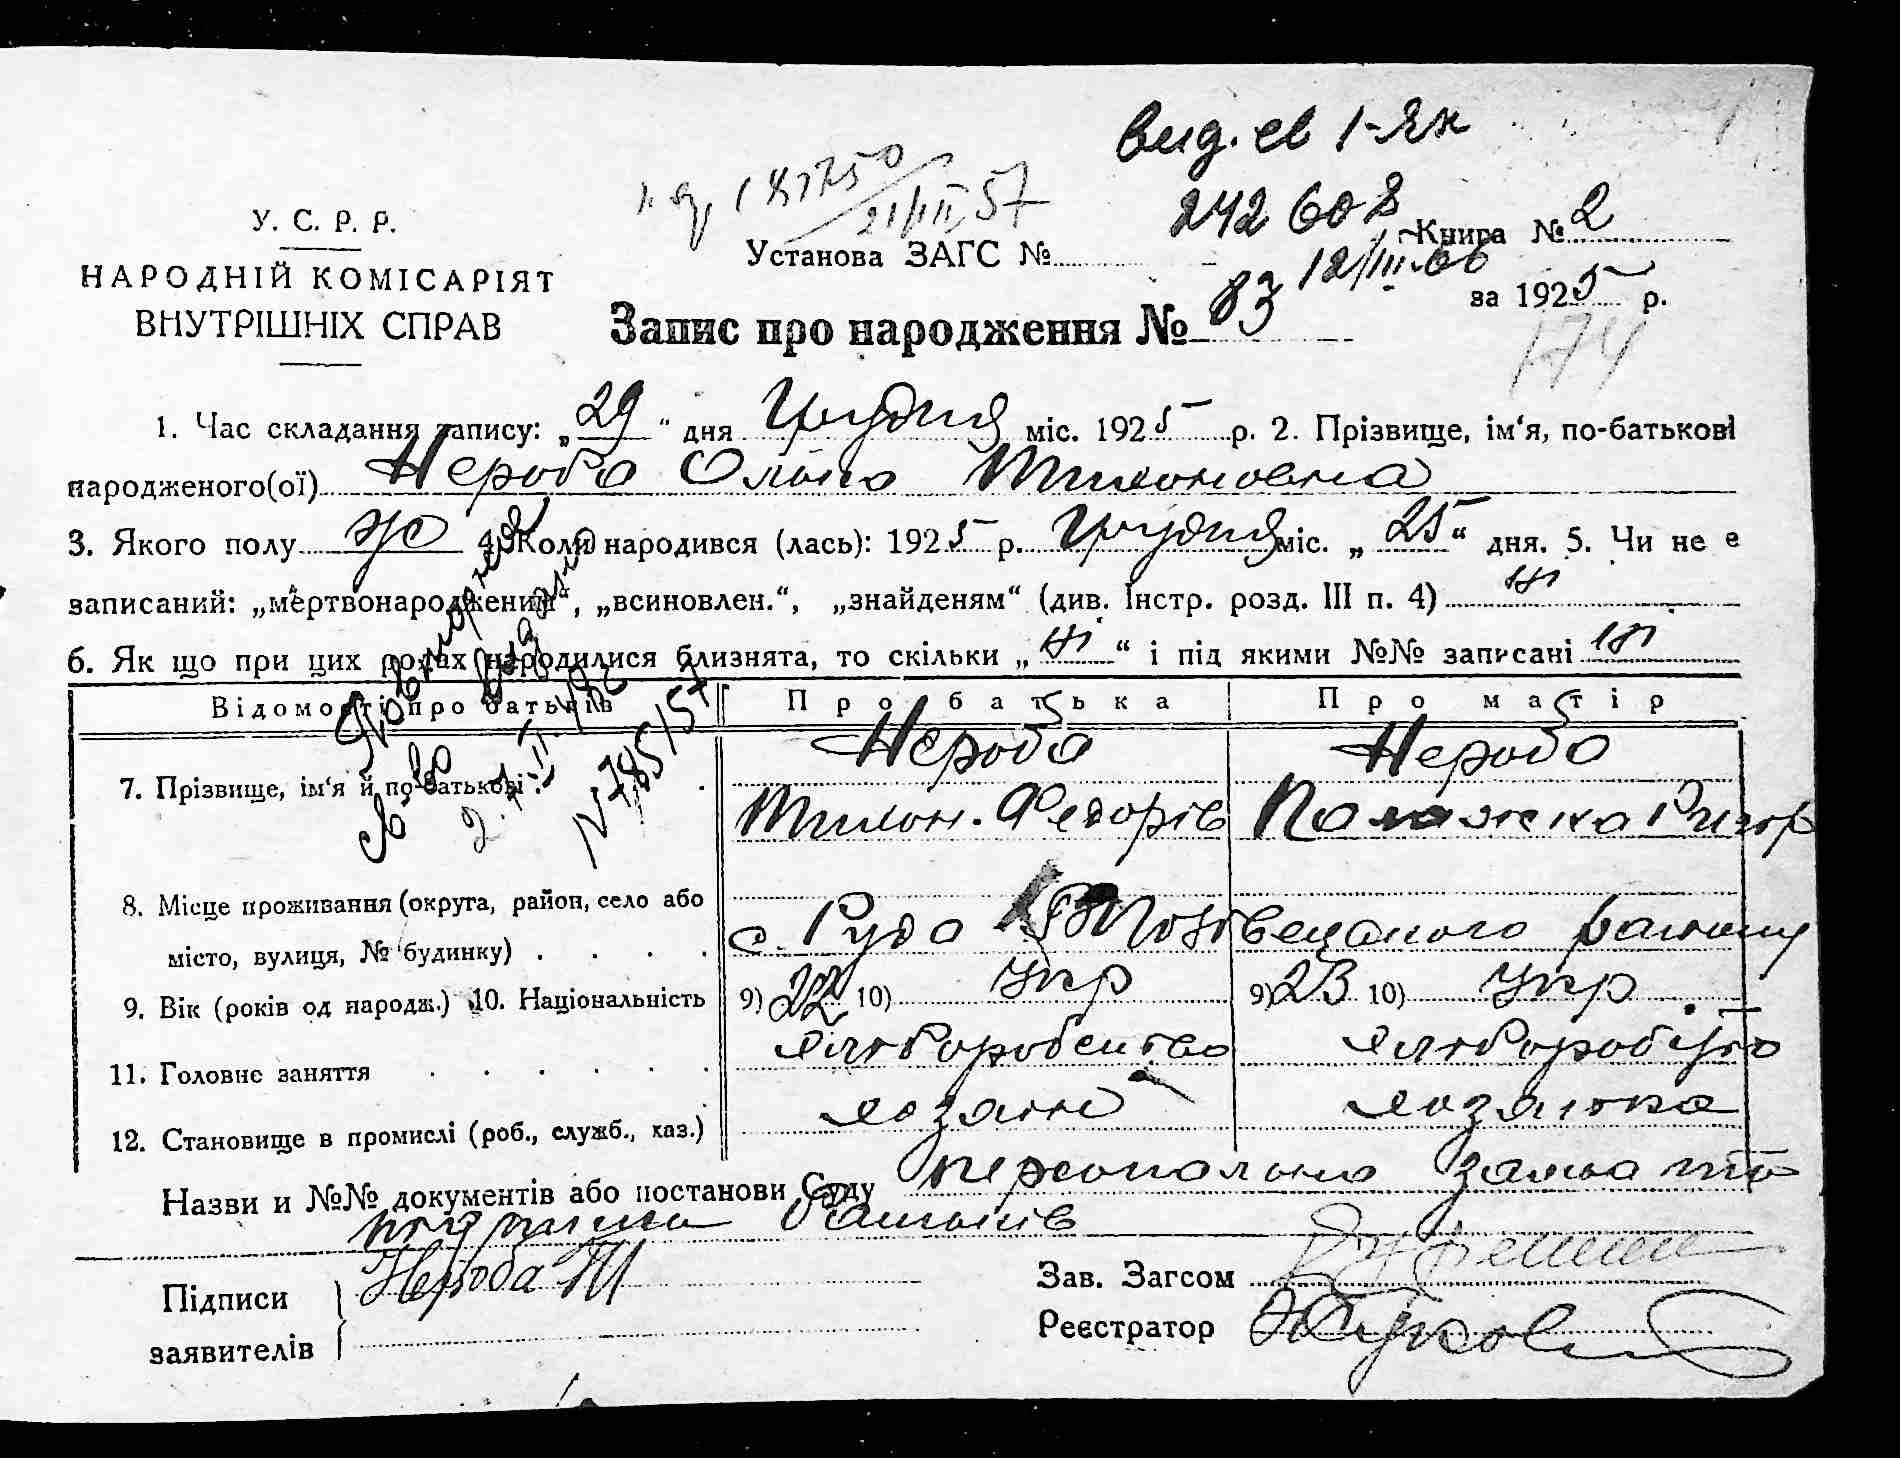 Вид. св 1-ЯК
242608
12/III-66
21/III 57
У. С. Р. Р.
НАРОДНІЙ КОМІСАРІЯТ
ВНУТРІШНІХ СПРАВ
Установа ЗАГС №
Книга № 2
за 1925 р.
174
Запис про народження № 83
1. Час складання запису: „29" дня Грудня міс. 1925 р. 2. Прізвище, ім'я, по-батькові
народженого(ої) Нероба Ольга Тихоновна
3. Якого полу ж 4. Коли народився (лась): 1925 р. Грудня міс. „25" дня. 5. Чи не є
записаний: „мертвонароджений", „всиновлен.", „знайденям" (див. Інстр. розд. III п. 4) ні
6. Як що при цих родах народилися близнята, то скільки „ні" і під якими №№ записані ні
Повторное
св-во выдано
N 785/57
Відомості про батьків
Про батька
Про матір
7. Прізвище, ім'я й по-батькові
Нероба
Тихон Федорів
Нероба
Палажка Григор
8. Місце проживання (округа, район, село або
місто, вулиця, № будинку)
с. Руда району
9. Вік (років од народж.) 10. Національність
9) 22 10) Укр
9) 23 10) Укр.
11. Головне заняття
хліборобство
хліборобство
12. Становище в промислі (роб., служб., хаз.)
хозяин
хозяйка
Назви и №№ документів або постанови Суду персональна заява та
підписи батьків
Підписи
заявителів
Нероба Т
Зав. Загсом
Реєстратор